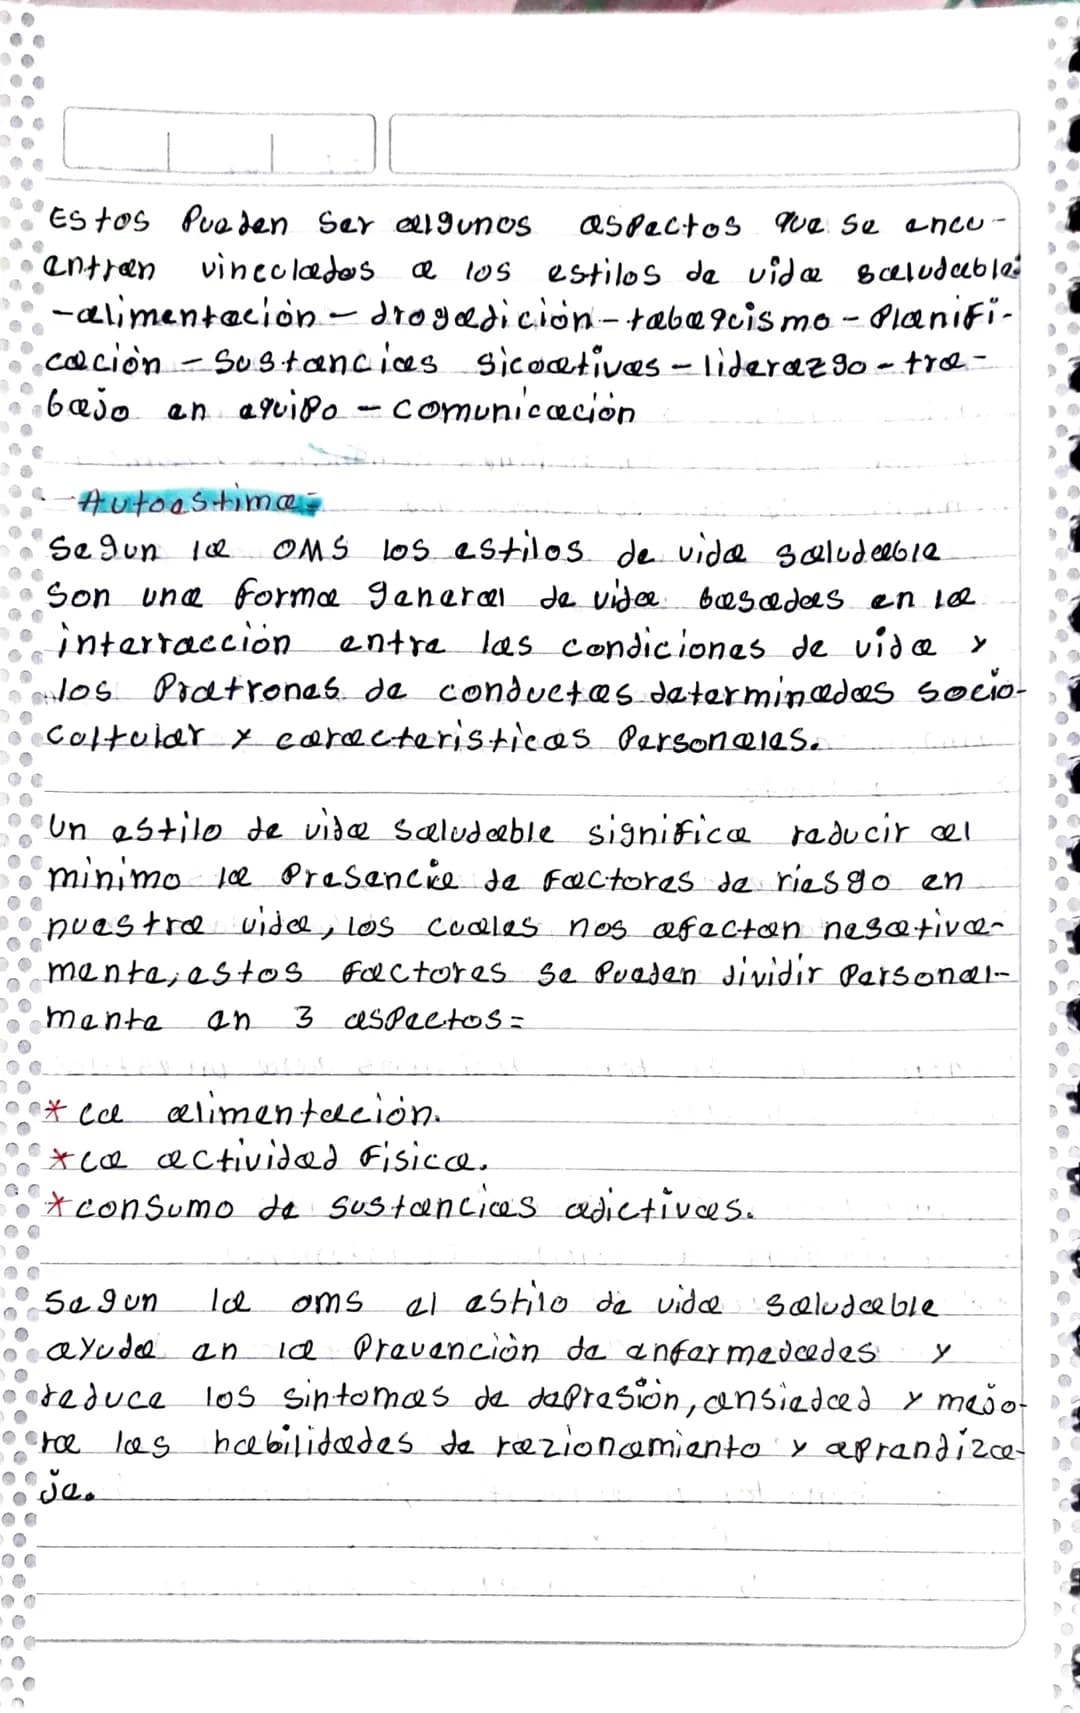 Estos Pueden Ser algunos aspectos que se encu-
entran vinculados a los estilos de vida saludable:
-alimentación - drogadicción - tabaquismo - Planifi-
cación - Sustancias sicoativas - liderazgo - tra-
bajo en equipo - comunicación
- Autoestima =
Segun la OMS los estilos de vida saludable
Son una forma general de vida basadas en la
interracción entre las condiciones de vida y
los Patrones de conductas determinadas socio-
coltular y caracteristicas Personales.
Un estilo de vida saludable significa reducir al
minimo la Presencia de Factores de riesgo en
nuestra vida, los cuales nos afectan negativa-
mente, estos factores se Pueden dividir Personal-
mente en 3 aspectos =
* La alimentación.
* La actividad Fisica.
* consumo de sustancias adictivas.
Segun la oms el estilo de vida saludable
ayuda en la Prevención de enfermedades y
reduce los sintomas de depresión, ansiedad y mejo-
ra las habilidades de razionamiento y aprendiza-
je.